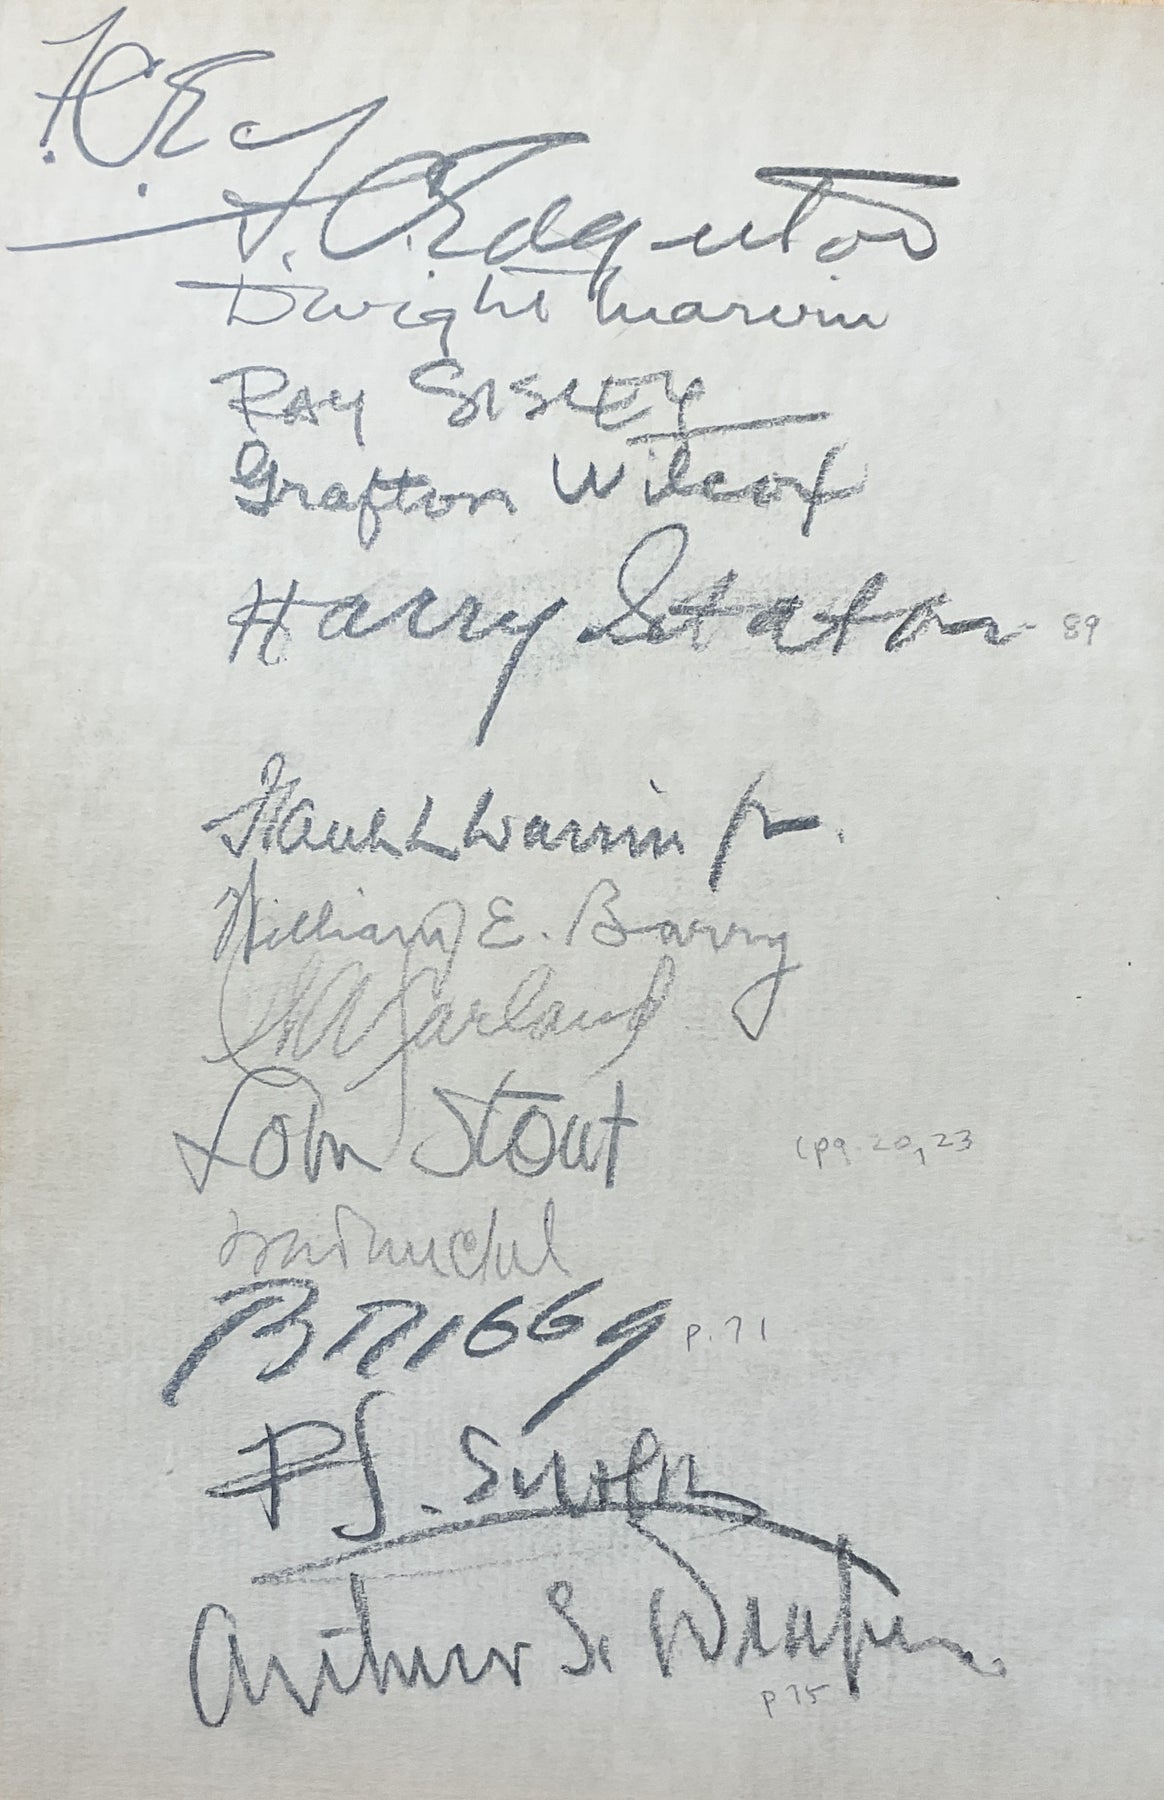 F. C. Edgerton
Dwight Marvin
RAY SISLEY
Grafton Wilcox
Harry Staton 89
Warrin Jr.
William E. Barry
Garland
Stout (pg. 20, 23
BRIGGS p. 71
P. J.
Arthur S. Draper
p 75